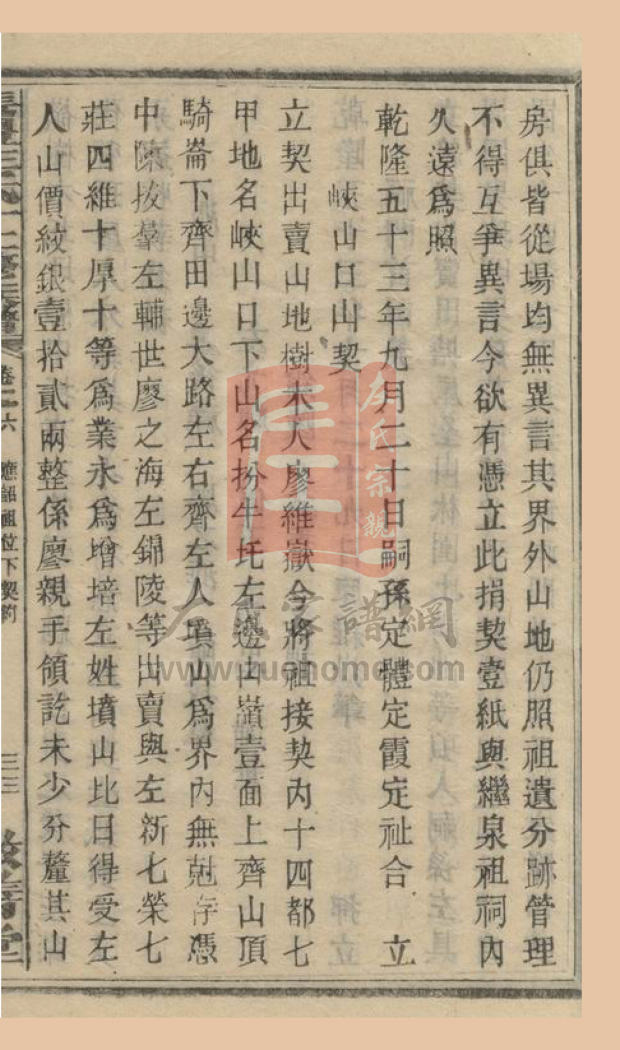 房俱皆從塲均無異言其界外山地仍照祖遺分跡管理
不得互爭異言今欲有憑立此捐契壹紙與繼泉祖祠內
久遠爲照
乾隆五十三年九月二十日嗣孫定體定霞定祉合 立
峽山口山契
立契出賣山地樹木人廖維嶽今將祖接契內十四都七
甲地名峽山口下山名扮牛圫左邊山嶺壹面上齊山頂
騎崙下齊田邊大路左右齊左人墳山爲界內無尅存憑
中陳拔羣左輔世廖之海左錦陵等出賣與左新七榮七
莊四維十厚十等爲業永爲增培左姓墳山比日得受左
人山價紋銀壹拾貳兩整係廖親手領訖未少分釐其山
卷二六 應詔祖位下契約 三三
左氏宗親
www.zuohome.com